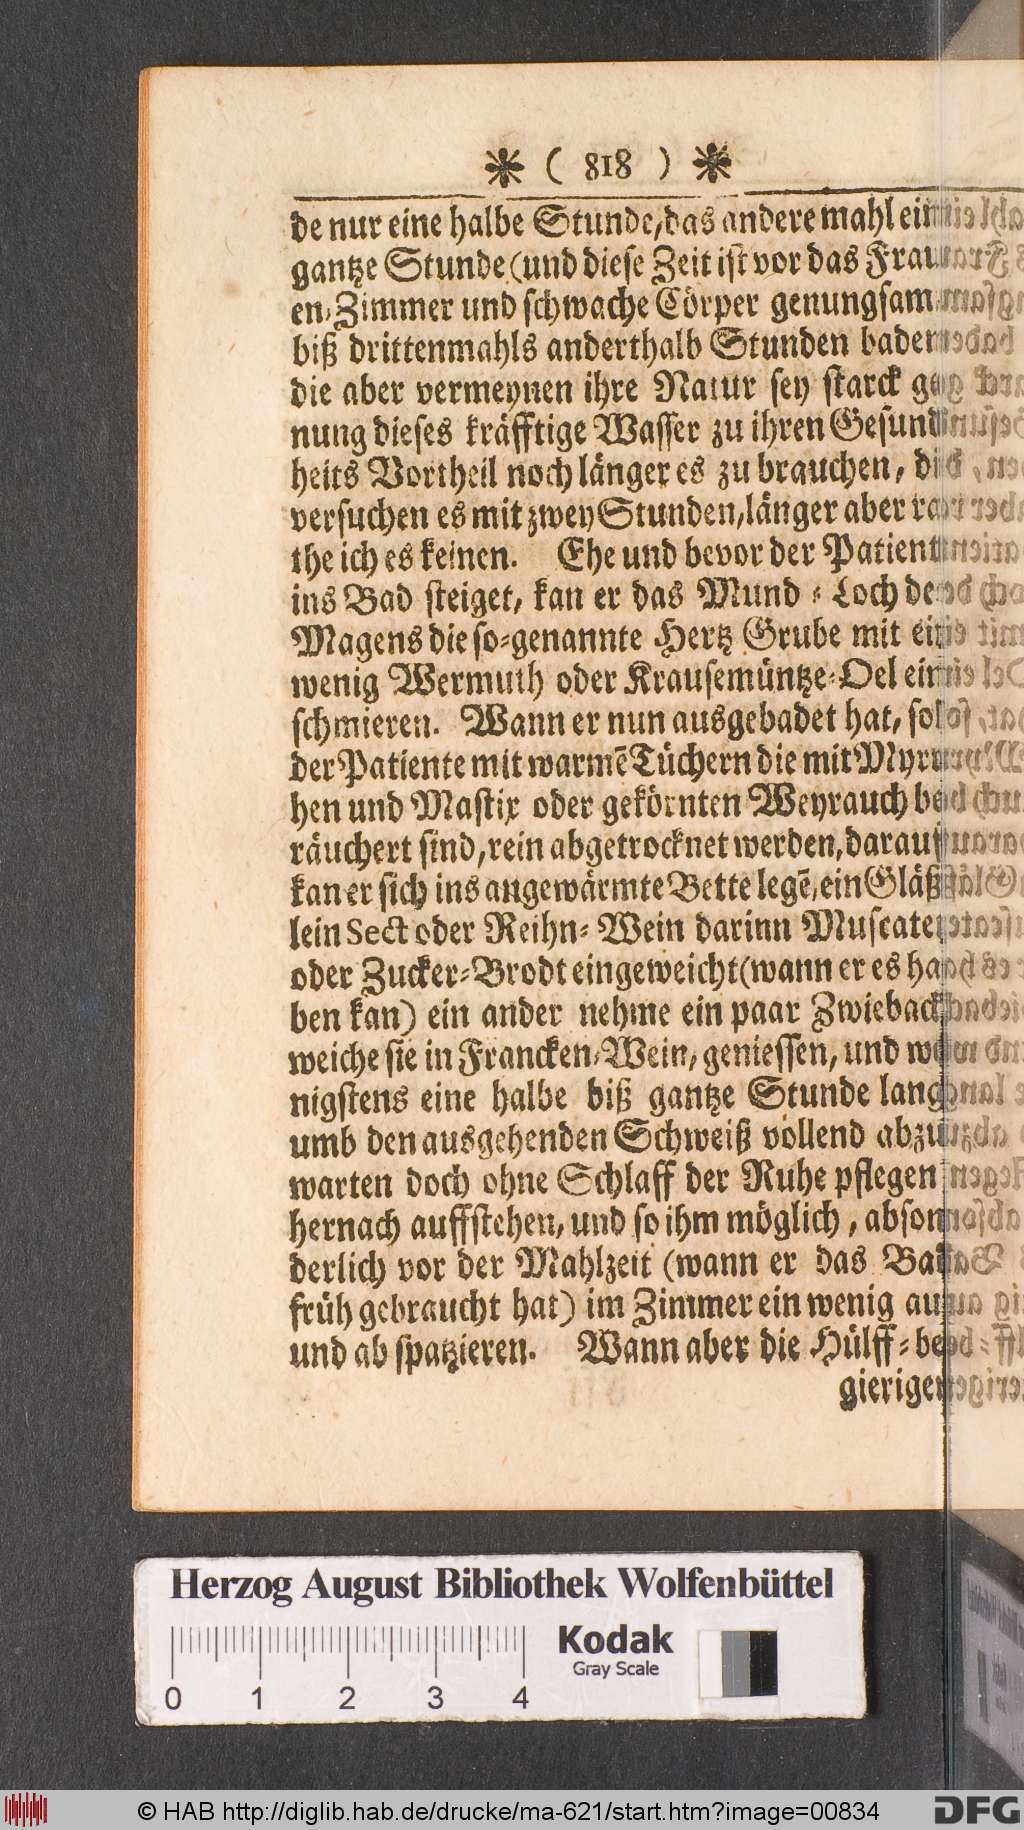 ( 818 )
de nur eine halbe Stunde, das andere mahl ein
gantze Stunde (und diese Zeit ist vor das Frau
en-Zimmer und schwache Cörper genungsam
biß drittenmahls anderthalb Stunden baden
die aber vermeynen ihre Natur sey starck ge
nung dieses kräfftige Wasser zu ihren Gesund
heits Vortheil noch länger es zu brauchen, die
versuchen es mit zwey Stunden, länger aber ra
the ich es keinen. Ehe und bevor der Patient
ins Bad steiget, kan er das Mund-Loch des
Magens die so-genannte Hertz Grube mit ein
wenig Wermuth oder Krausemüntze-Oel ein
schmieren. Wann er nun ausgebadet hat, so
der Patiente mit warmē Tüchern die mit Myrr
hen und Mastix oder gekörnten Weyrauch be
räuchert sind, rein abgetrocknet werden, darauf
kan er sich ins angewärmte Bette legē, ein Gläß
lein Sect oder Reihn-Wein darinn Muscaten
oder Zucker-Brodt eingeweicht (wann er es ha
ben kan) ein ander nehme ein paar Zwieback
weiche sie in Francken-Wein, geniessen, und we
nigstens eine halbe biß gantze Stunde lang
umb den ausgehenden Schweiß vollend abzu
warten doch ohne Schlaff der Ruhe pflegen
hernach auffstehen, und so ihm möglich, abson
derlich vor der Mahlzeit (wann er das Bad
früh gebraucht hat) im Zimmer ein wenig auf
und ab spatzieren. Wann aber die Hülff-be
gierigen
Herzog August Bibliothek Wolfenbüttel
Kodak
Gray Scale
0 1 2 3 4
© HAB http://diglib.hab.de/drucke/ma-621/start.htm?image=00834
DFG